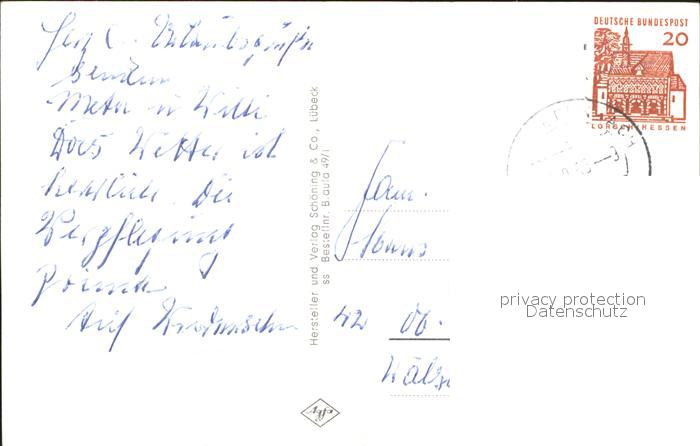 Herzl. Urlaubsgrüße
senden
Meta u Willi
Das Wetter ist
herrlich. Die
Verpflegung
prima
Auf Wiedersehn
Hersteller und Verlag Schöning & Co., Lübeck
ss Bestellnr. B.aula 49/1
Agfa
DEUTSCHE BUNDESPOST
20
LORSCH/HESSEN
Fam.
Hans
42 Ob.
Wälz
privacy protection
Datenschutz